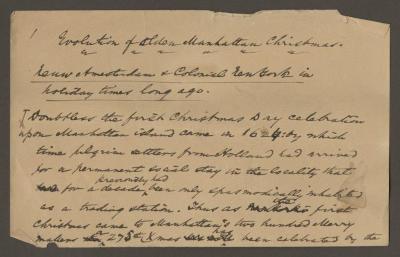 1
Evolution of Olden Manhattan Christmas.
Nieuw Amsterdam & Colonial New York in
holiday times long ago.
Doubtless the first Christmas Day celebration
upon Manhattan island came in 1624: by which
time pilgrim settlers from Holland had arrived
for a permanent social stay in the locality that
previously had
for a decade been only spasmodically inhabited
as a trading station. Thus as first
Christmas came to Manhattan's two hundred Merry
makers 275th Xmas been celebrated by the